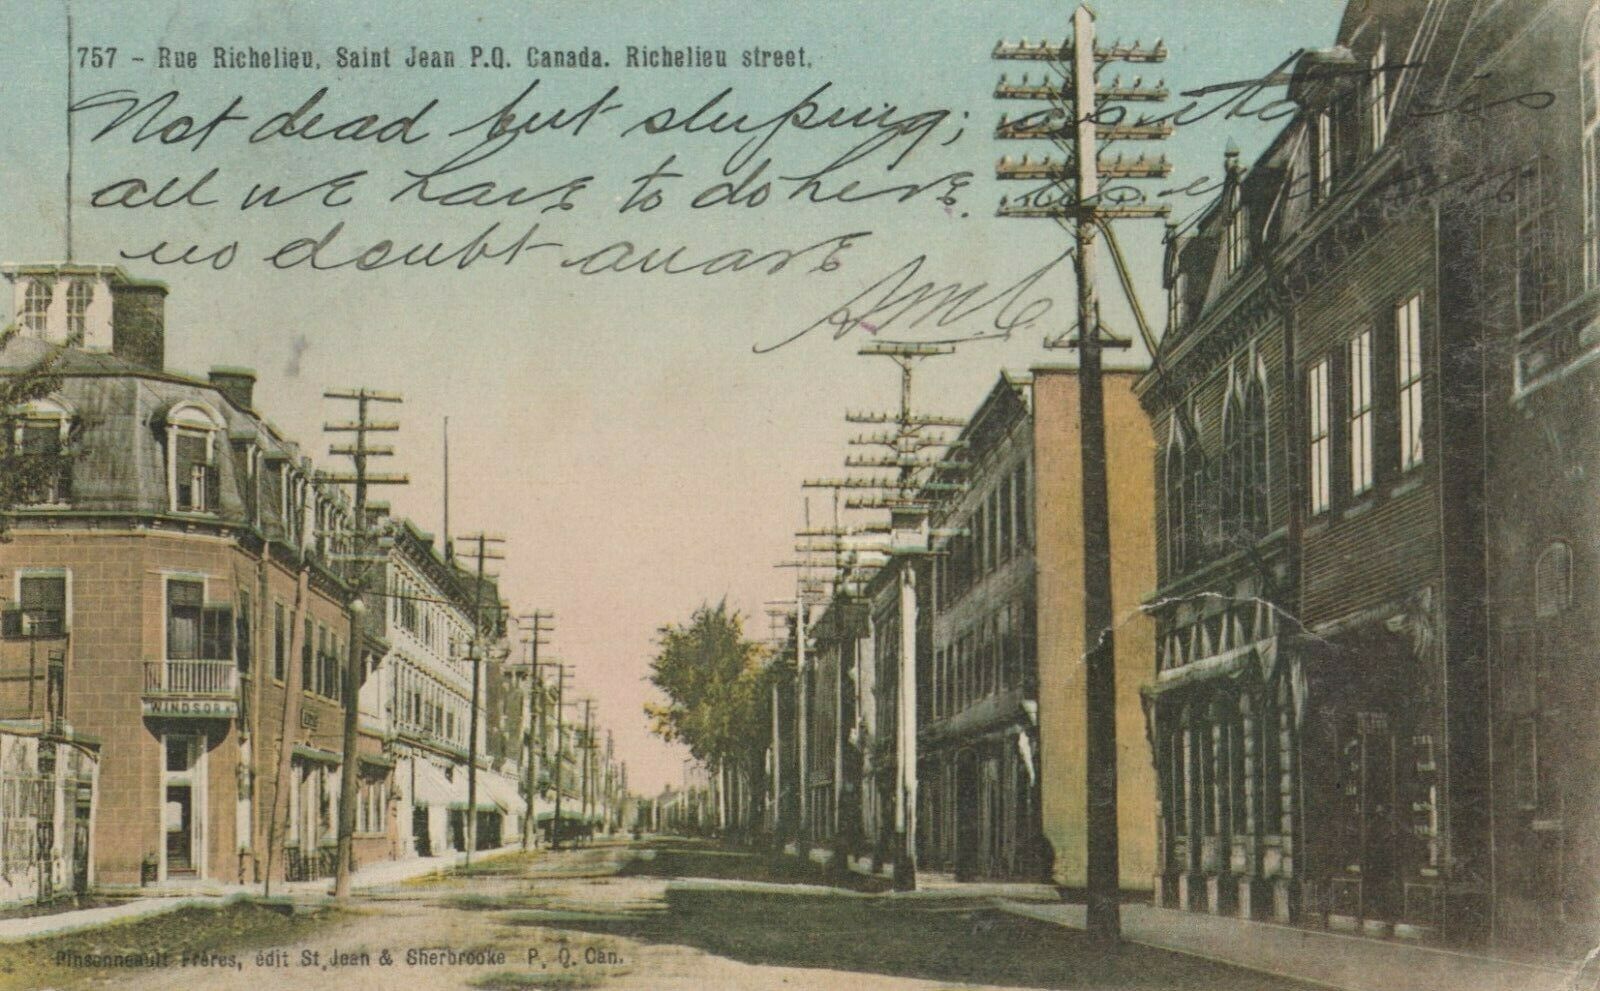 757 - Rue Richelieu, Saint Jean P.Q. Canada. Richelieu street.
Not dead but sleeping; as that is
all we have to do here. as you are
no doubt aware
WINDSOR
Pinsonneault Frères, édit St. Jean & Sherbrooke P. Q. Can.